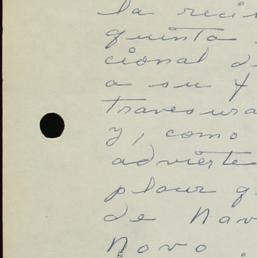 la reci
quinta
cional d
a su f
travesura
y, como
advierte
placer q
de Nav
Novo.